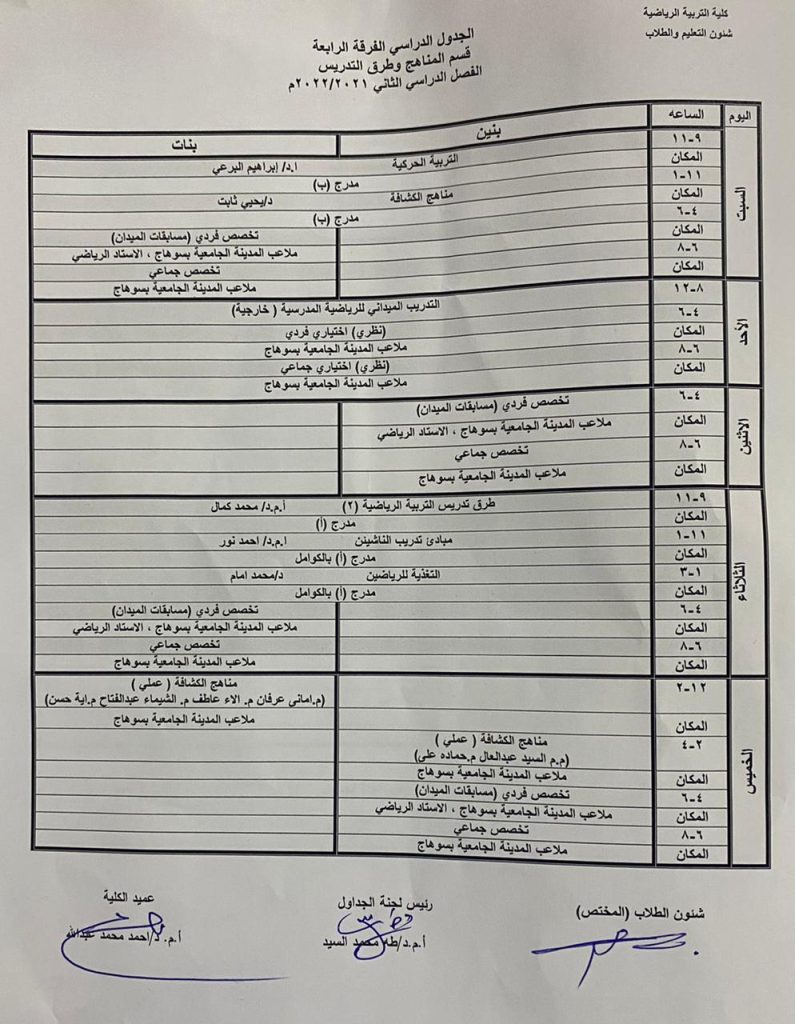 كلية التربية الرياضية
شئون التعليم والطلاب
الجدول الدراسي الفرقة الرابعة
قسم المناهج وطرق التدريس
الفصل الدراسي الثاني ٢٠٢٢/٢٠٢١م
اليوم الساعه بنين بنات
السبت
٩-١١ التربية الحركية ا.د/ إبراهيم البرعي
المكان مدرج (ب)
١١-١ مناهج الكشافة د/يحيي ثابت
المكان مدرج (ب)
٤-٦ تخصص فردي (مسابقات الميدان)
المكان ملاعب المدينة الجامعية بسوهاج ، الاستاد الرياضي
٦-٨ تخصص جماعي
المكان ملاعب المدينة الجامعية بسوهاج
الأحد
٨-١٢ التدريب الميداني للرياضية المدرسية ( خارجية)
٤-٦ (نظري) اختياري فردي
المكان ملاعب المدينة الجامعية بسوهاج
٦-٨ (نظري) اختياري جماعي
المكان ملاعب المدينة الجامعية بسوهاج
الاثنين
٤-٦ تخصص فردي (مسابقات الميدان)
المكان ملاعب المدينة الجامعية بسوهاج ، الاستاد الرياضي
٦-٨ تخصص جماعي
المكان ملاعب المدينة الجامعية بسوهاج
الثلاثاء
٩-١١ طرق تدريس التربية الرياضية (٢) أ.م.د/ محمد كمال
المكان مدرج (أ)
١١-١ مبادئ تدريب الناشينن ا.م.د/ احمد نور
المكان مدرج (أ) بالكوامل
١-٣ التغذية للرياضين د/محمد امام
المكان مدرج (أ) بالكوامل
٤-٦ تخصص فردي (مسابقات الميدان)
المكان ملاعب المدينة الجامعية بسوهاج ، الاستاد الرياضي
٦-٨ تخصص جماعي
المكان ملاعب المدينة الجامعية بسوهاج
الخميس
١٢-٢ مناهج الكشافة ( عملي )
(م.امانى عرفان م. الاء عاطف م. الشيماء عبدالفتاح م.اية حسن)
المكان ملاعب المدينة الجامعية بسوهاج
٢-٤ مناهج الكشافة ( عملي )
(م.م السيد عبدالعال م.حماده على)
المكان ملاعب المدينة الجامعية بسوهاج
٤-٦ تخصص فردي (مسابقات الميدان)
المكان ملاعب المدينة الجامعية بسوهاج ، الاستاد الرياضي
٦-٨ تخصص جماعي
المكان ملاعب المدينة الجامعية بسوهاج
شئون الطلاب (المختص) رئيس لجنة الجداول عميد الكلية
أ.م.د/طه محمد السيد أ.م. د/احمد محمد عبدالله